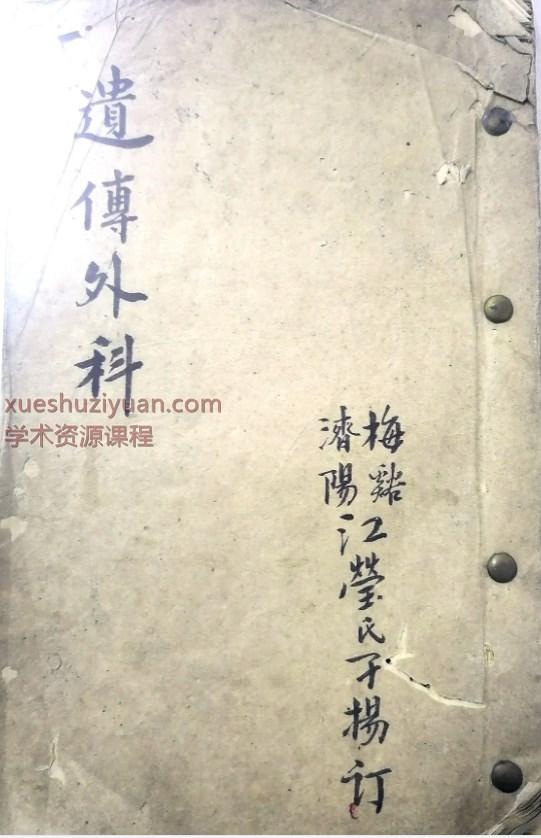 遺傳外科
xueshuziyuan.com
学术资源课程
梅谿
濟陽
江瑩氏子揚訂